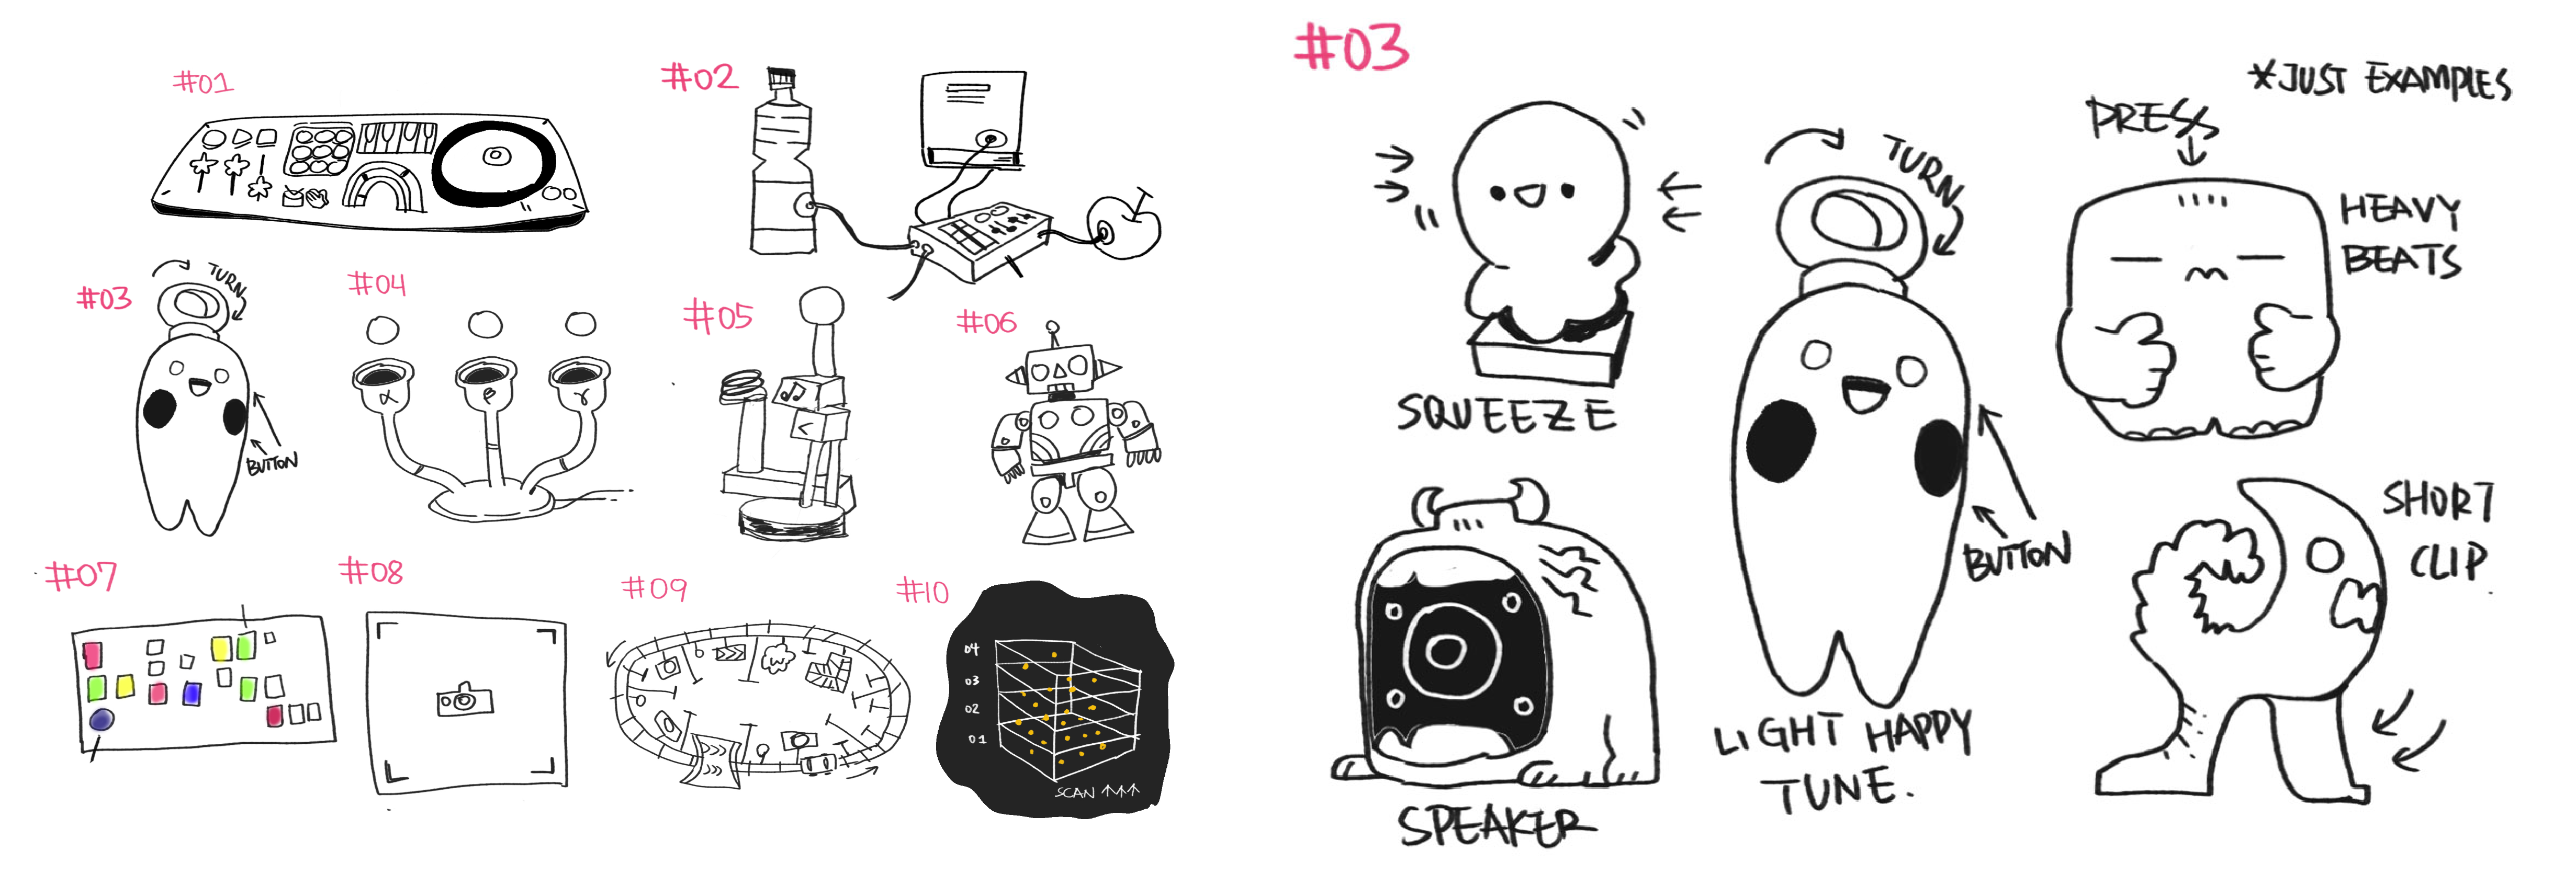 #01
#02
#03
TURN
BUTTON
#04
α
β
γ
#05
#06
#07
#08
#09
#10
04
03
02
01
SCAN ↑↑↑
#03
*JUST EXAMPLES
SQUEEZE
TURN
BUTTON
LIGHT HAPPY
TUNE.
PRESS
HEAVY
BEATS
SPEAKER
SHORT
CLIP